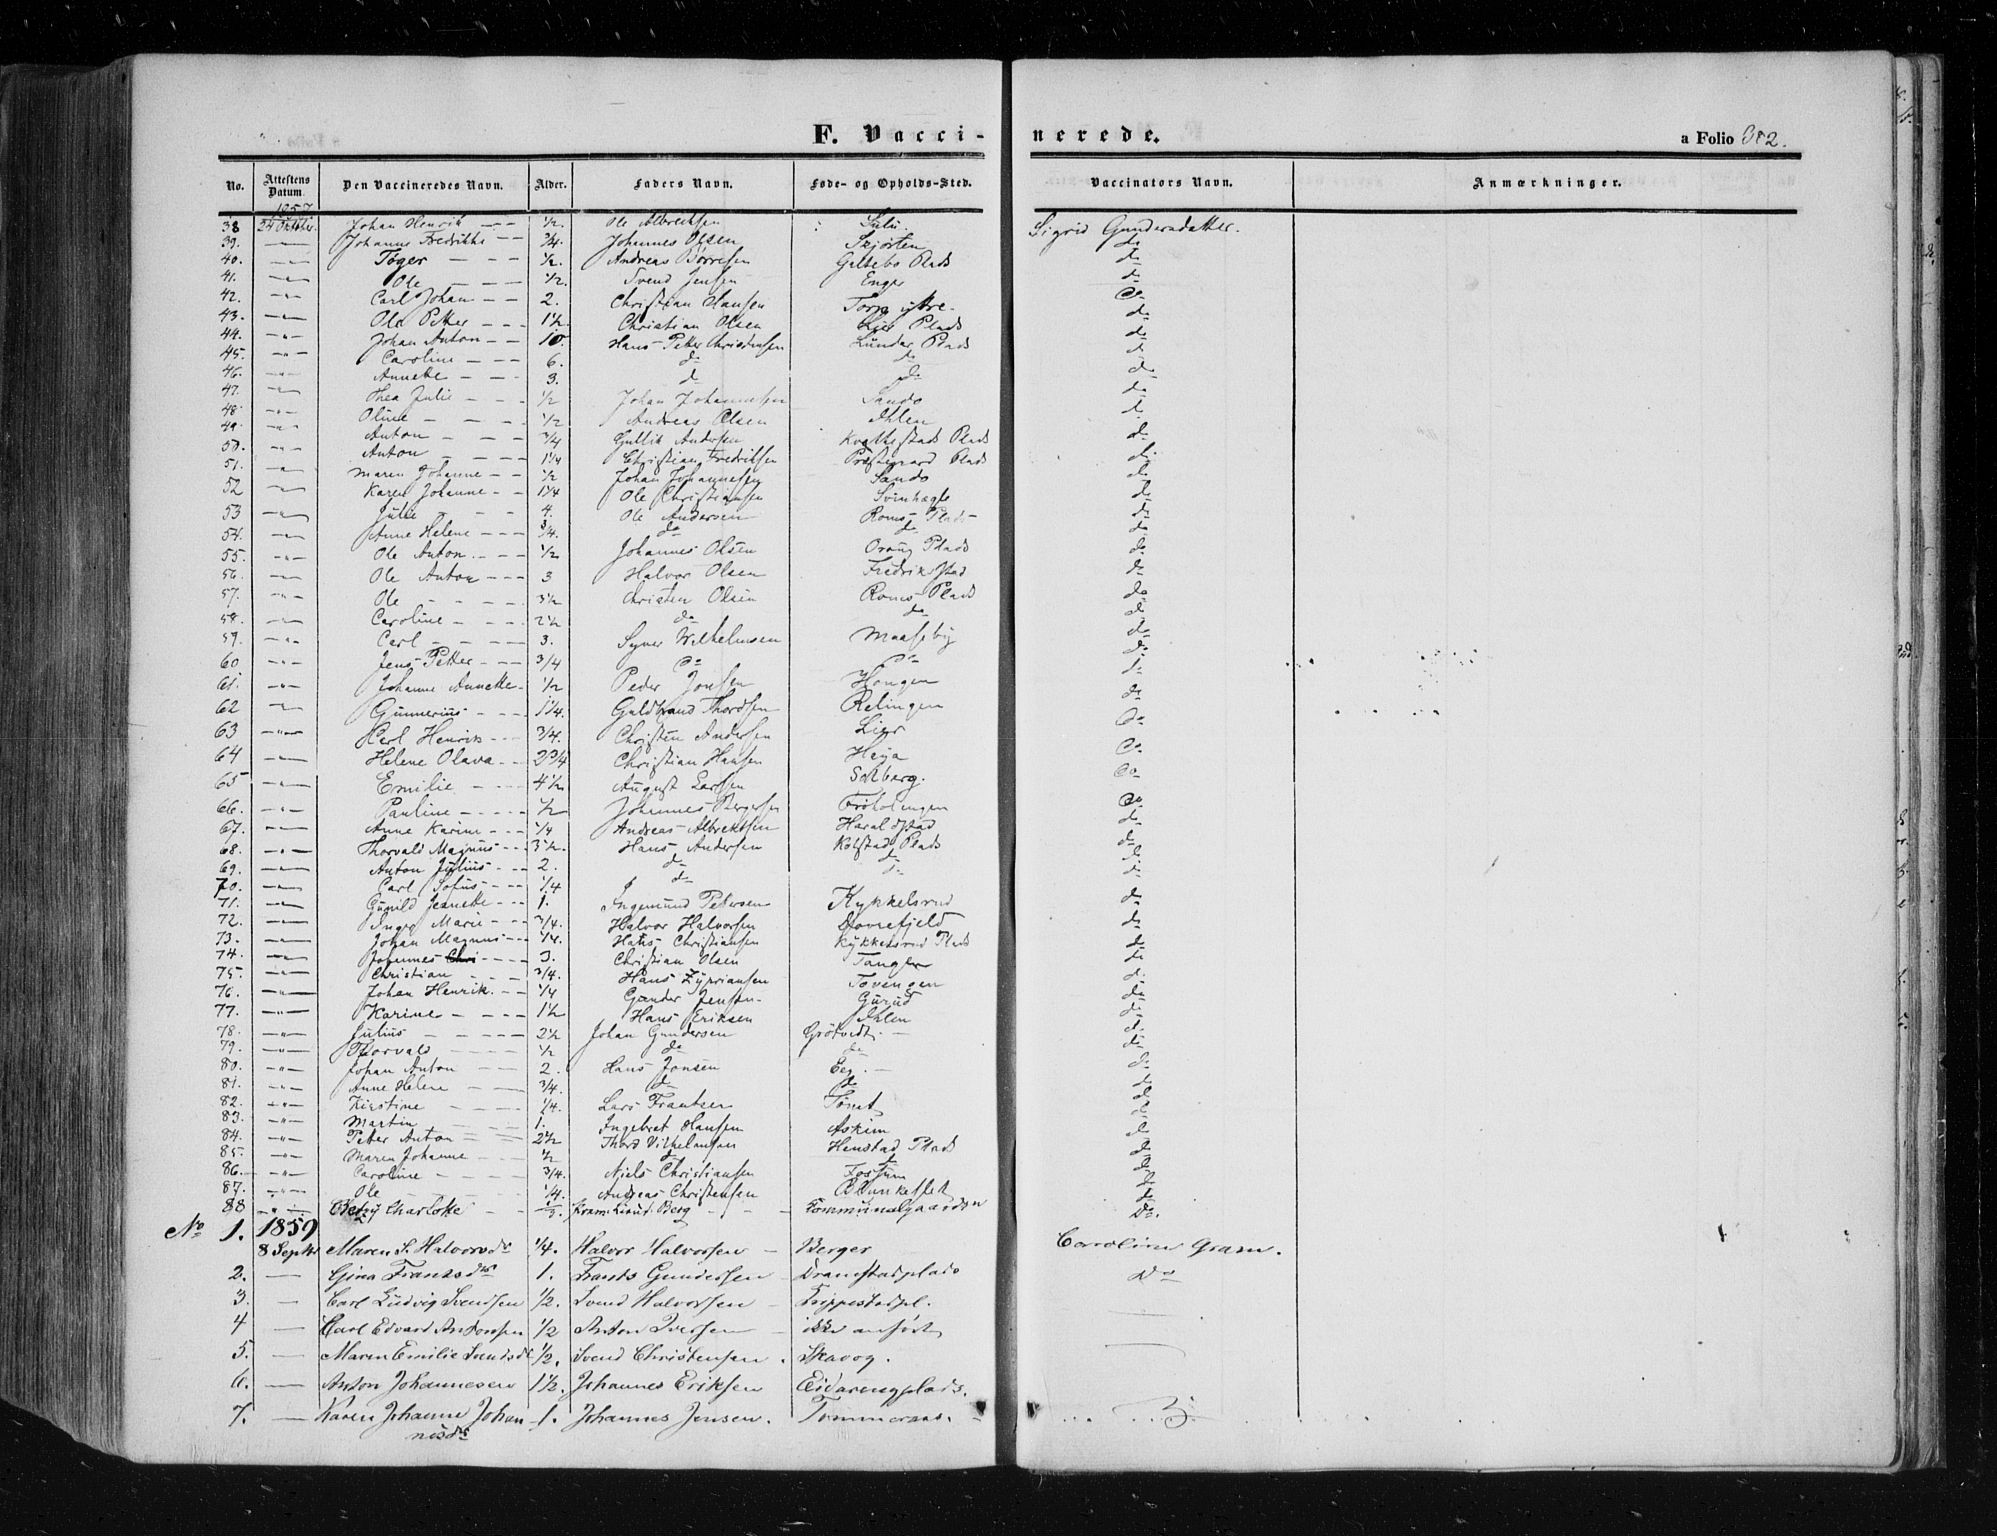 F. Vaccinerede. a Folio 382.
No. Attestens Datum. Den Vaccineredes Navn. Alder. Faders Navn. Føde- og Opholds-Sted. Vaccinators Navn. Anmærkninger.
1857
38 24 Oktober Johan Henrik 1/2 Ole Albrechtsen Sulu. Sigrid Gundersdatter.
39. Johanne Fredrikke 3/4. Johannes Olsen Skjørten do
40. Tøger 1/2. Andreas Børresen Galtebo Plads do
41. Ole 1/2. Svend Jensen Enger do
42. Carl Johan 2. Christian Hansen Torp østre. Do
43. Ole Petter 1 1/2. Christian Olsen Lier Plads do
44. Johan Anton 10. Hans Petter Christensen Lunder Plads do
45. Caroline 6. do do do
46. Annette 3. do do do
47. Thea Julie 1/2 Johan Johannesen Sando do
48. Oline 1/2 Andreas Olsen Ihlen do
49. Anton 3/4 Gullik Andersen Kvæthestads Plads do
50. Anton 1 1/4 Christian Fredriksen Præstegaard Plads do
51. Maren Johanne 1/2 Johan Johannesen Sando do
52 Karen Johanne 1 1/4 Ole Christiansen Svinhægle do
53 Julie 4. Ole Andersen Roms-Plads do
54. Anne Helene 3/4. do do do
55. Ole Anton 1/2 Johannes Olsen Oraug Plads do
56. Ole Anton 3 Halvor Olsen Fredrikstad do
57. Ole 3 1/2 Christen Olsen Roms-Plads do
58. Caroline 2 1/2 do do do
59. Carl 3. Syver Wilhelmsen Maaseby do
60 Jens Petter 3/4 Do do do
61. Johanne Annette 1/2 Peder Jonsen Hongen do
62 Gunnerius 1 1/4. Guldbrand Thordsen Relingen do
63 Carl Henrik 3/4. Christen Andersen Lier Do
64 Helene Olava 2 3/4 Christian Hansen Heia Co
65 Emilie 4 1/2 August Larsen Solberg. Co
66. Pauline 1/2 Johannes Bergersen Frøholmgen Do
67. Anne Karine 1/4 Andreas Albrektsen Haraldstad do
68. Thorvald Magnus 3 1/2. Hans Andersen Kolstad Plads do
69. Anton Julius 2. do do do
70. Carl Sofus 1/4 do do
71. Gunild Jeanette 1. Ingemund Petersen Kykkelsrud do
72. Inger Marie 3/4. Halvor Halvorsen Dovrefjeld do
73. Johan Magnus 1/4. Hans Christiansen Kykkelsrud Plads do
74. Johannes 3. Christian Olsen Tangen do
75. Christian 3/4. Hans Zypriansen Tovengen do
76. Johan Henrik. 1/4 Gunder Jensen Gurud do
77. Karine 1 1/2 Hans Eriksen Ihlen do
78. Julius 2 1/2 Johan Gundersen Grøtvedt do
79. Thorvald 1/2 do do do
80. Johan Anton 2. Hans Jonsen Eeg. do
81. Anne Helene 3/4. do do do
82. Kirstine 1/4. Lars Frantsen Tømt do
83. Martin 1. Ingebret Hansen Askim do
84. Peter Anton 2 1/2 Thord Vilhelmsen Henstad Plads do
85. Maren Johanne 1/2 do do do
86. Caroline 3/4. Niels Christiansen Fossum do
87. Ole 1/4. Andreas Christensen do
88 Charlotte Berg Kommunegaarden Do.
No 1. 1859
8 Septbr Maren S. Halvorsdr 1/4. Halvor Halvorsen Berger Caroline Gram.
2. Gina Frantsdr 1. Frants Gundersen Dramstadplads Do
3. Carl Ludvig Svendsen 1/2. Svend Halvorsen Trippestadpl.
4 Carl Edvard Antonsen 1/2 Anton Iversen ikke anført
5. Maren Emilie Svendsdr 1/2. Svend Christensen. Skavog.
6. Anton Johannesen 1 1/2. Johannes Eriksen Eidarengplads.
7. Karen Johanne Johan 1. Johannes Jensen. Tommeraas.
nesdr